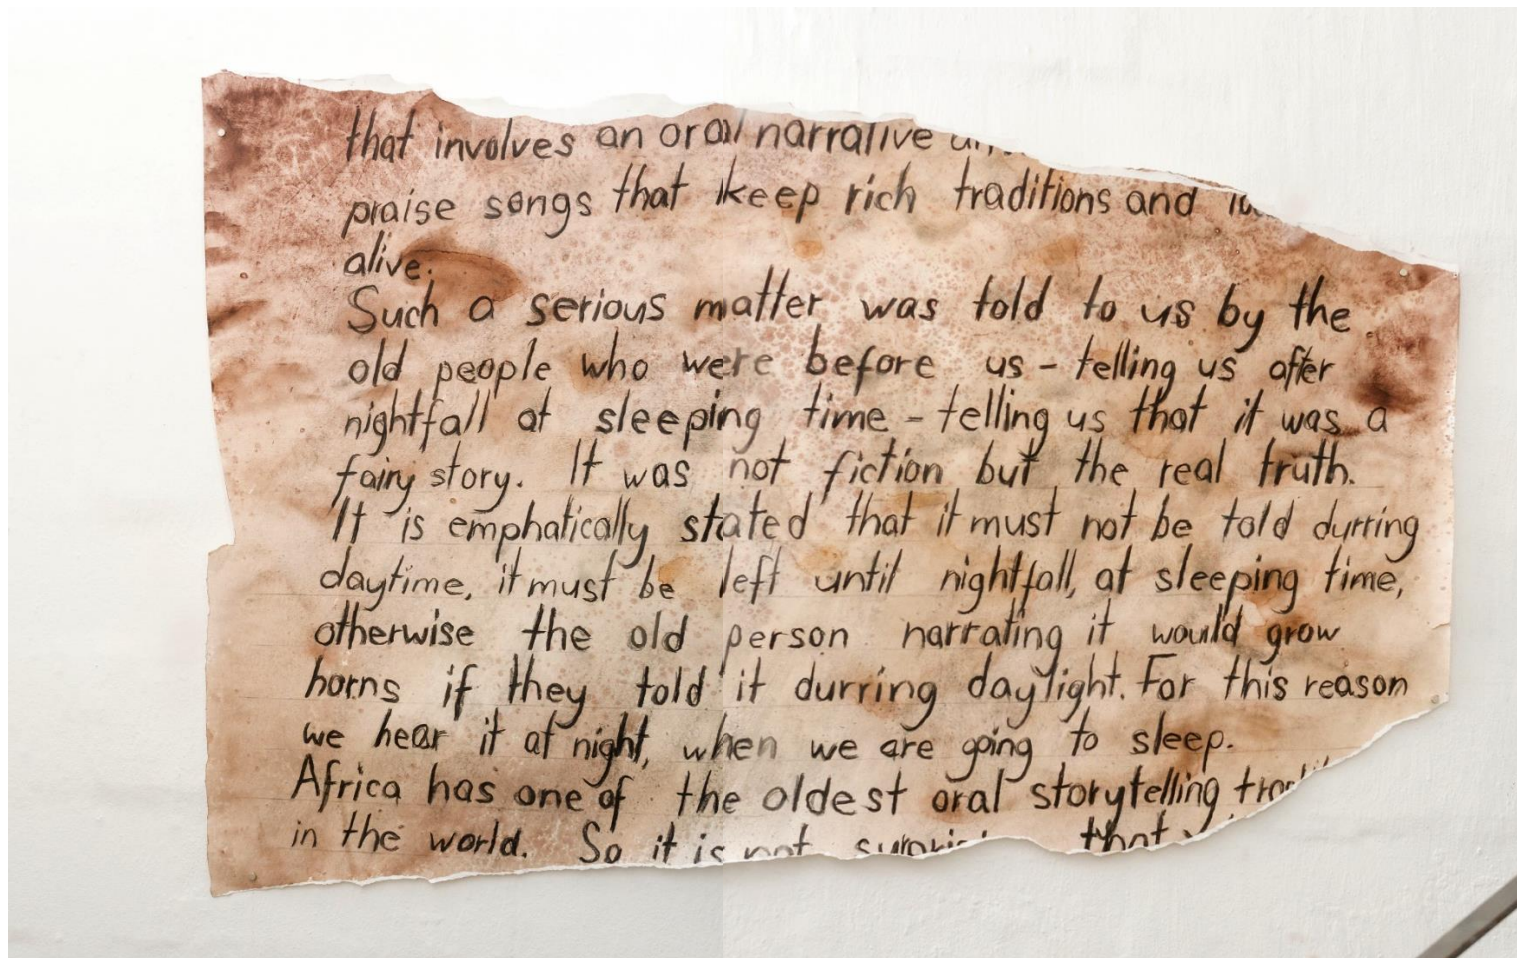 that involves an oral narrative
praise songs that keep rich traditions and
alive.
Such a serious matter was told to us by the
old people who were before us - telling us after
nightfall at sleeping time - telling us that it was a
fairy story. It was not fiction but the real truth.
It is emphatically stated that it must not be told durring
daytime, it must be left until nightfall, at sleeping time,
otherwise the old person narrating it would grow
horns if they told it durring daylight. For this reason
we hear it at night, when we are going to sleep.
Africa has one of the oldest oral storytelling
in the world. So it is not that